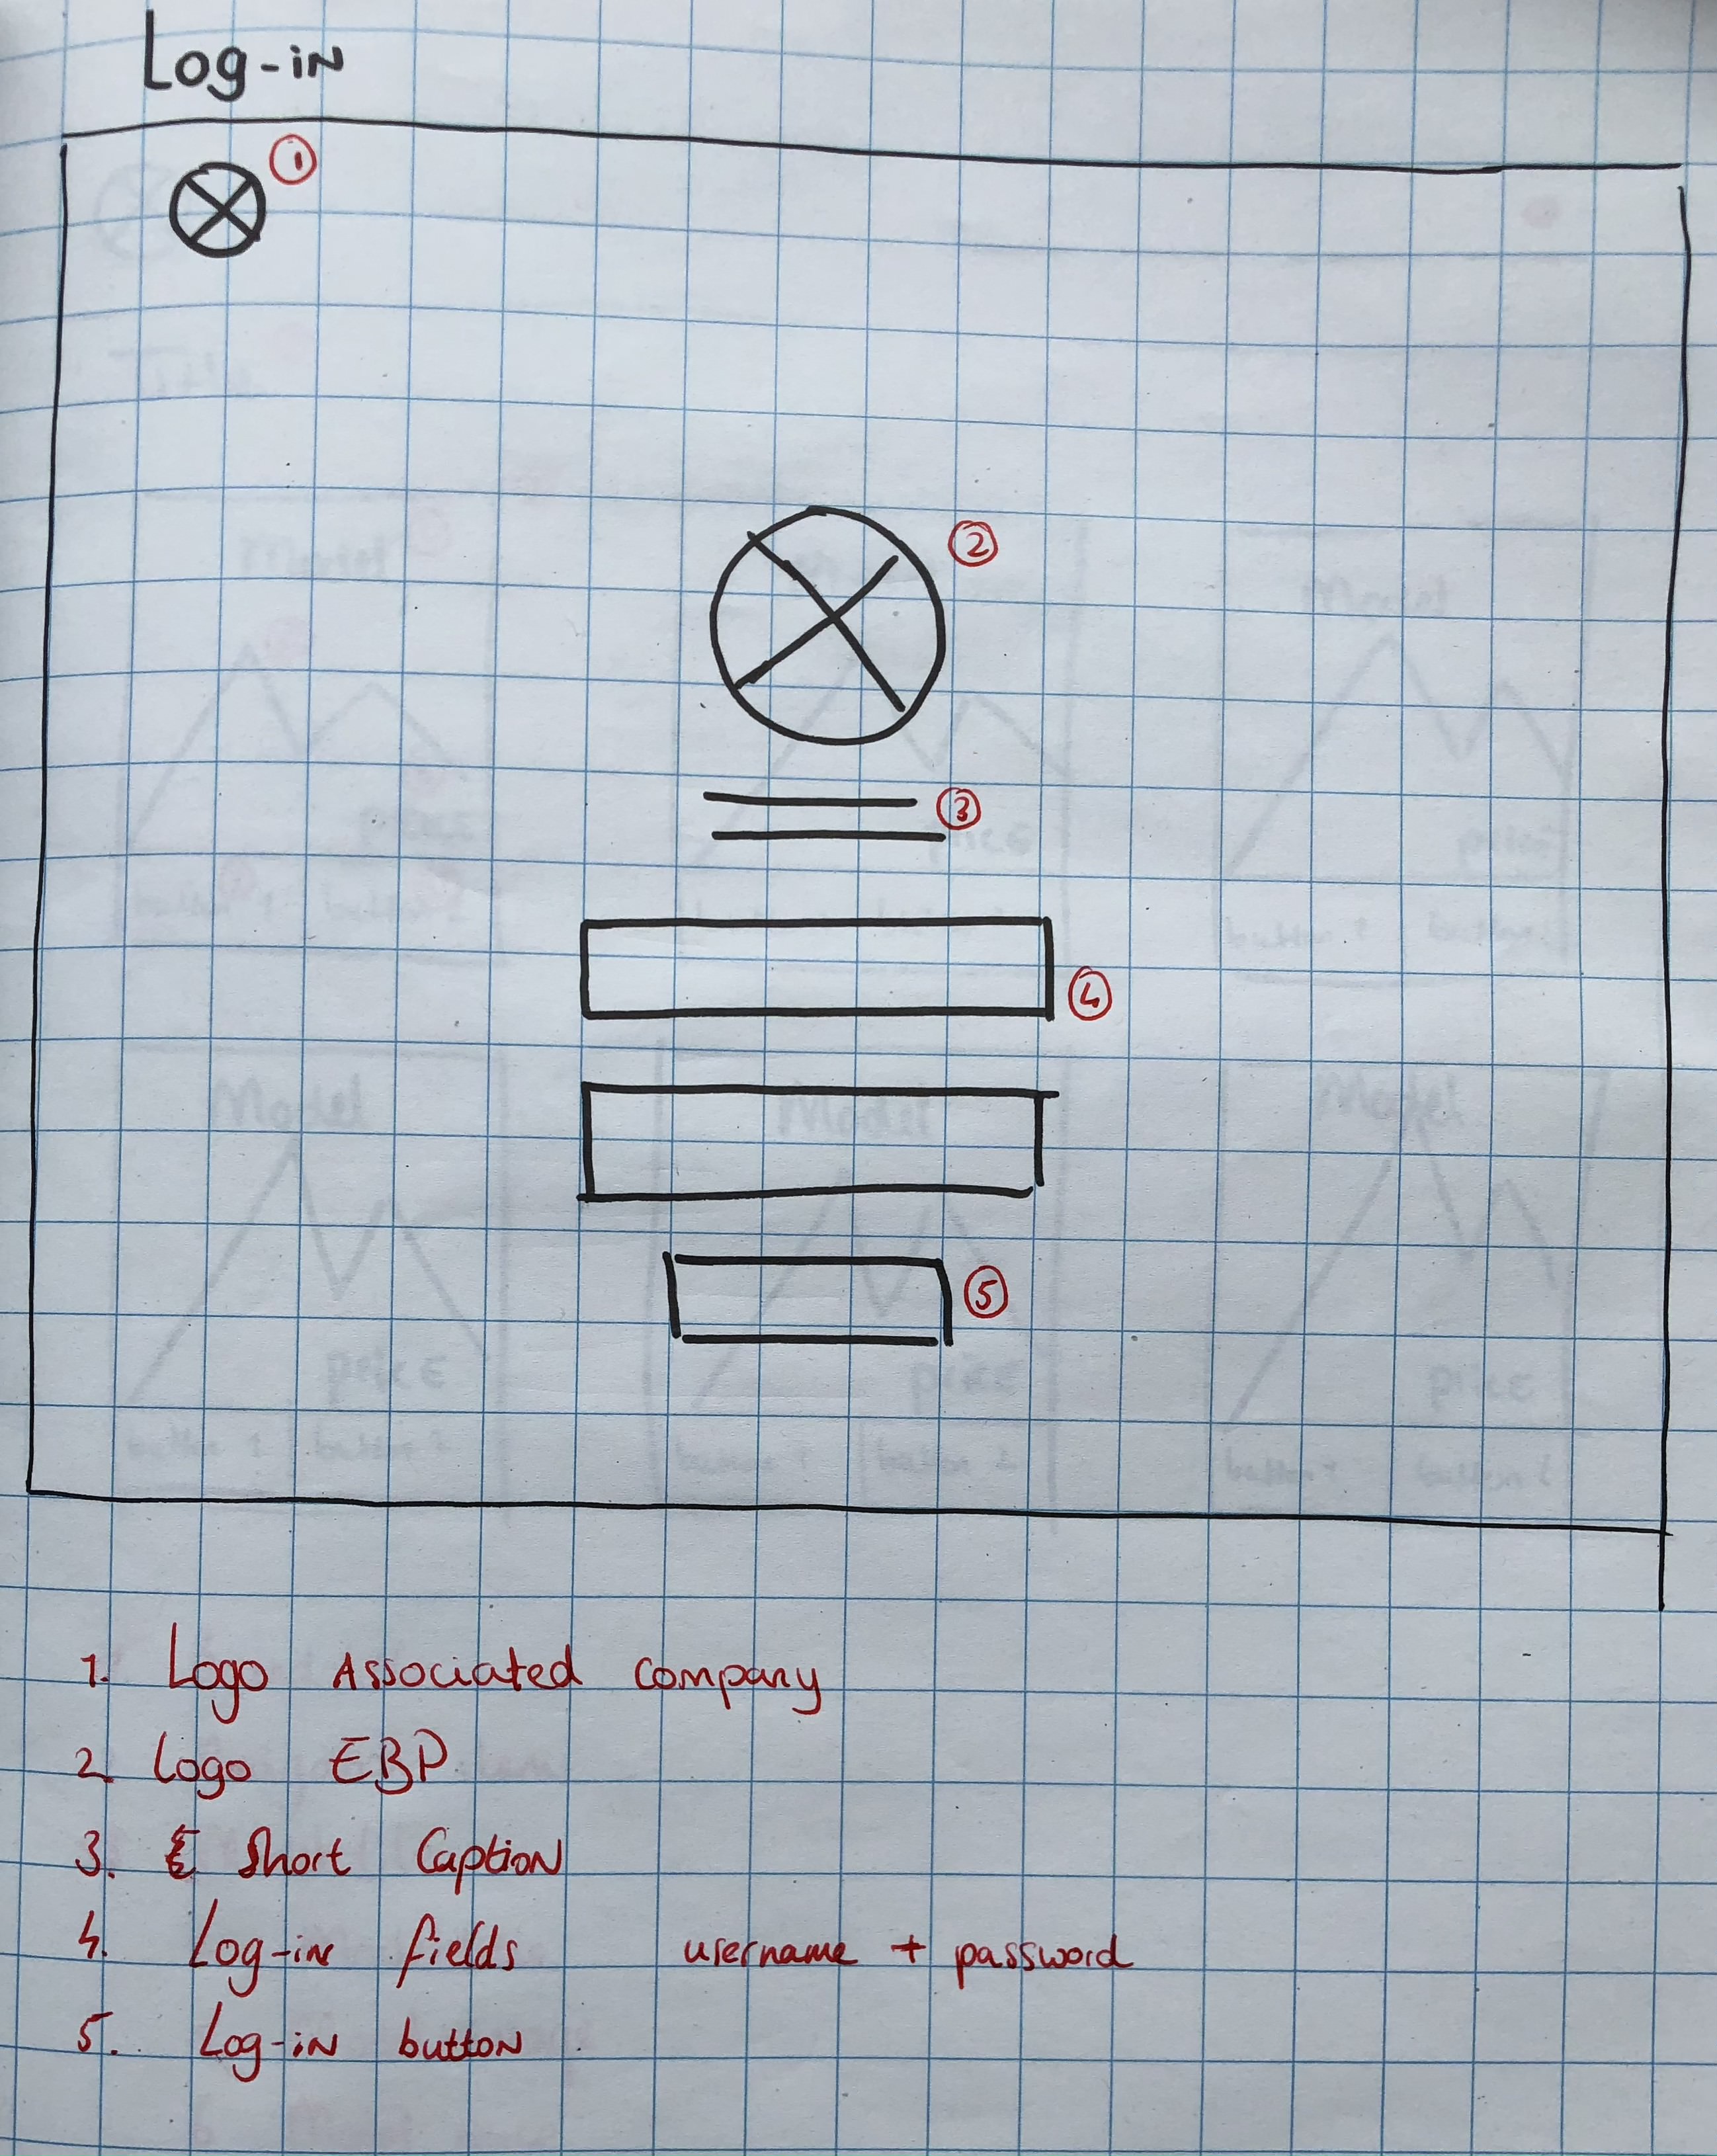 Log-in
1
2
3
4
5
1. Logo Associated company
2. Logo EBP
3. Short Caption
4. Log-in fields username + password
5. Log-in button